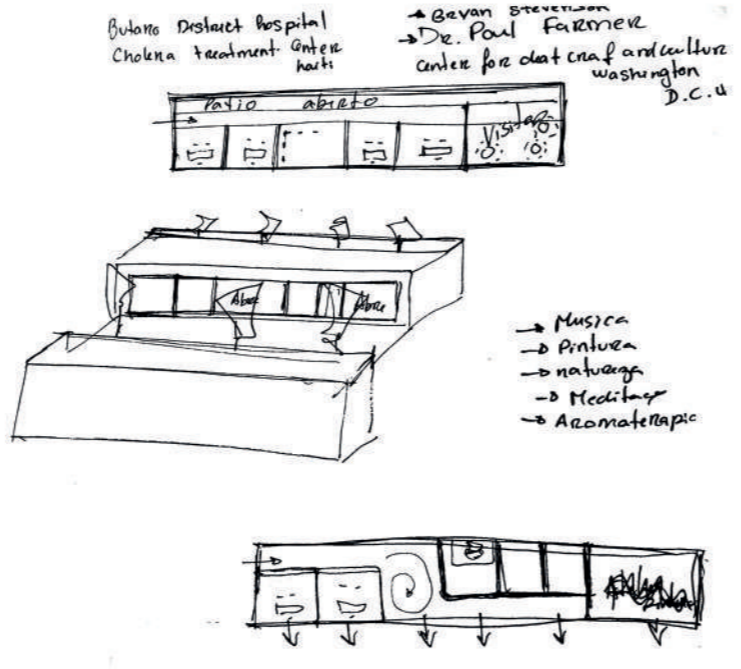 Butaro District hospital
Cholera treatment Center
haiti
→ Bryan Stevenson
→ Dr. Paul Farmer
Center for deat craf and culture
Washington
D.C.
Patio aberto
Visitas
Abre
Abre
→ Musica
→ Pintura
→ natureza
→ Meditaçã
→ Aromaterapia